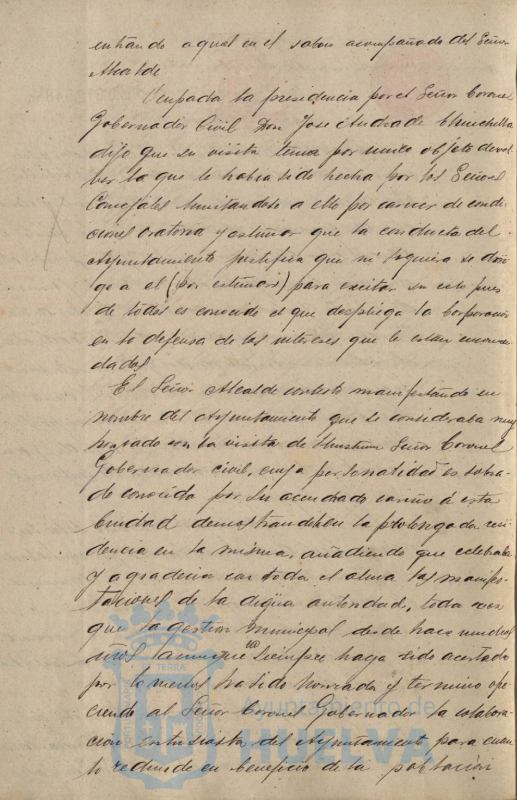 entrando aquel en el salon acompañado del Señor
Alcalde
Ocupada la presidencia por el Señor Coronel
Gobernador Civil Don Jose Andrade Chinchilla
dijo que su visita tenia por unico objeto devol
ver la que le habia sido hecha por los Señores
Concejales limitandose a ello por carecer de condi
ciones oratoria y estimar que la conducta del
Ayuntamiento justifica que ni siquiera se diri
ga a el (por estimari) para excitar su celo pues
de todos es conocido el que despliega la Corporacion
en la defensa de los intereses que le estan encomen
dados
El Señor Alcalde contesto manifestando en
nombre del Ayuntamiento que se consideraba muy
honrado con la visita del Señor Coronel
Gobernador civil, cuya personalidad es sobra
do conocida por su acendrado cariño á esta
Ciudad demostrando en la prolongada resi
dencia en la misma, añadiendo que celebraba
y agradecia con toda el alma las manifes
taciones de la digna autoridad, toda vez
que la gestion municipal desde hace muchos
años aunque no siempre haya sido acertada
por lo menos ha sido honrada y termino ofre
ciendo al Señor Coronel Gobernador la colabora
cion entusiasta del Ayuntamiento para cuan
to redunde en beneficio de la poblacion
Ayuntamiento de
HUELVA